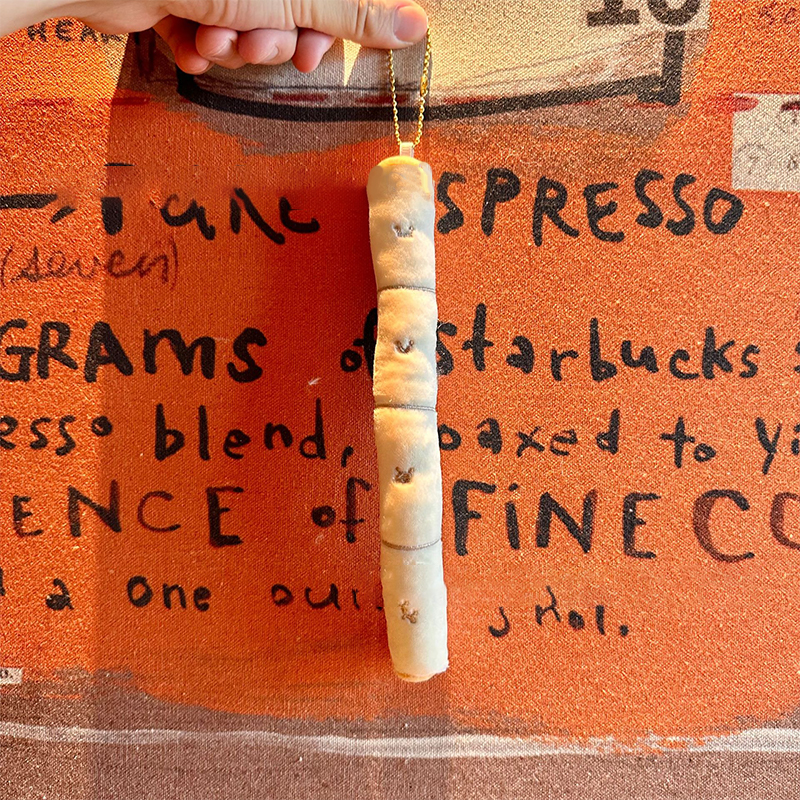 HEA
10
ESPRESSO
(seven)
GRAMS of starbucks
esso blend, coaxed to ya
ENCE of FINE CO
a one